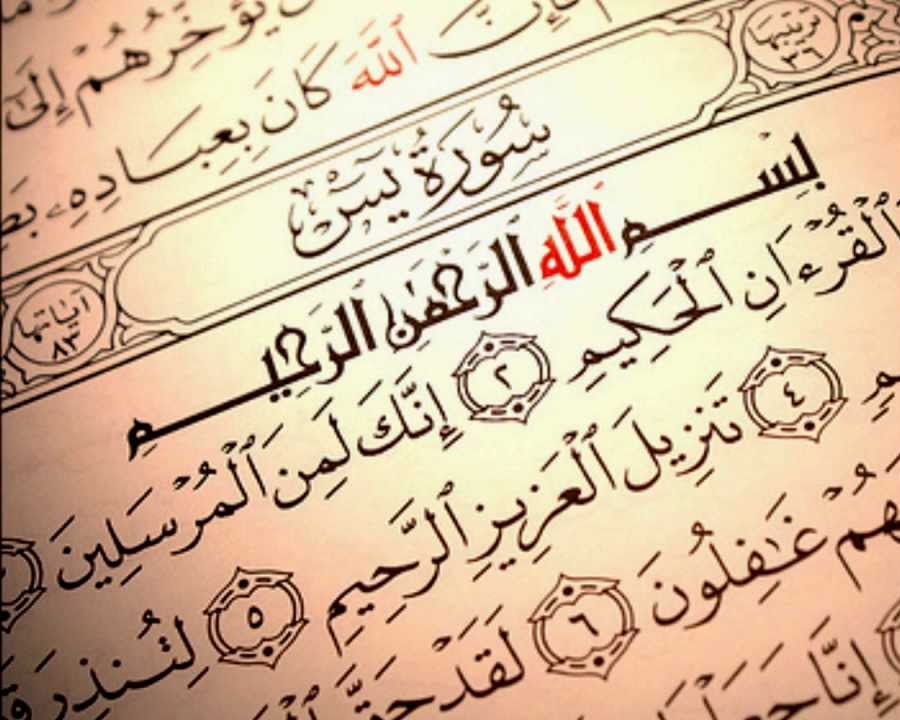 يُؤَخِّرُهُمْ إِلَىٰ
فَإِنَّ ٱللَّهَ كَانَ بِعِبَادِهِۦ
ترتيبها ٣٦
سُورَةُ يسٓ
آياتها ٨٣
بِسْمِ اللَّهِ الرَّحْمَٰنِ الرَّحِيمِ
ٱلْقُرْءَانِ ٱلْحَكِيمِ ٢ إِنَّكَ لَمِنَ ٱلْمُرْسَلِينَ
٤ تَنزِيلَ ٱلْعَزِيزِ ٱلرَّحِيمِ ٥ لِتُنذِرَ
غَٰفِلُونَ ٦ لَقَدْ حَقَّ
إِنَّا جَعَلْنَا